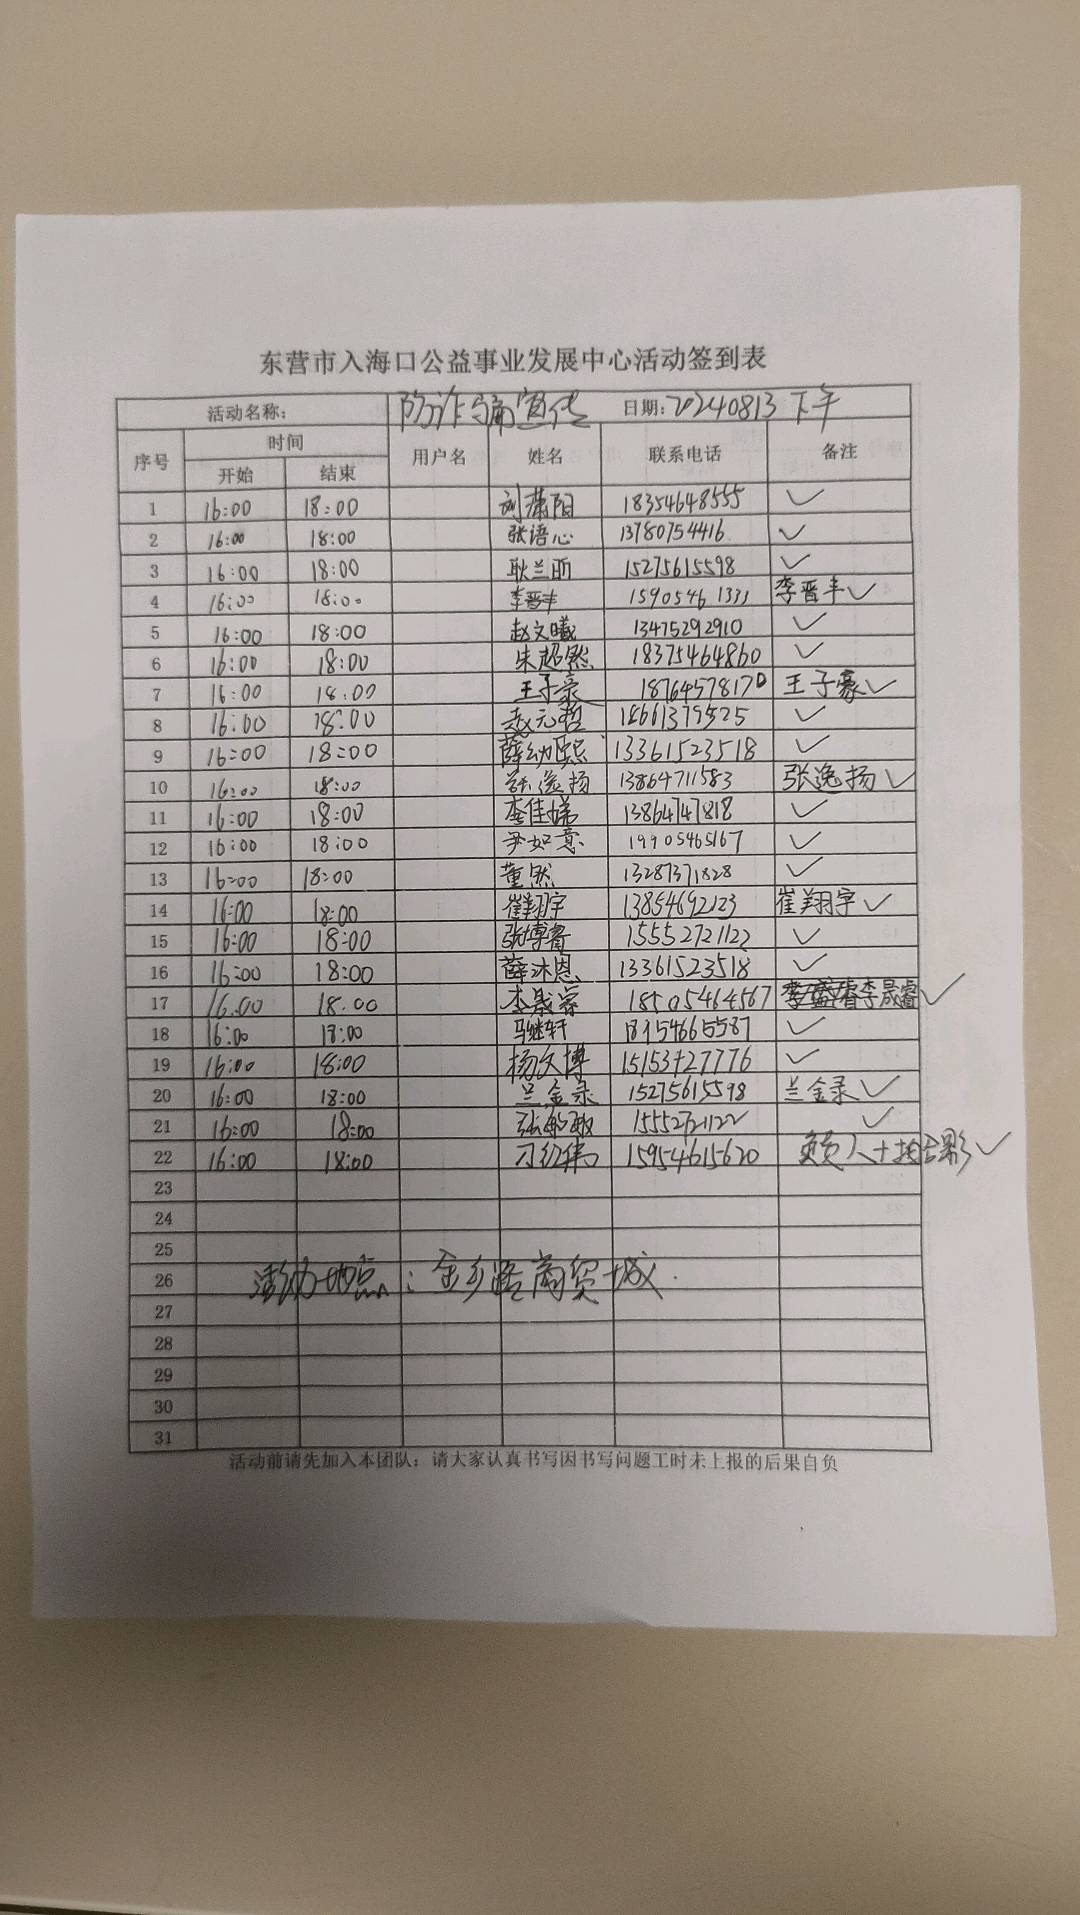 东营市入海口公益事业发展中心活动签到表
活动名称: 防诈骗宣传 日期:20240813 下午
序号 时间 用户名 姓名 联系电话 备注
开始 结束
1 16:00 18:00 刘潇阳 18354648555 ✓
2 16:00 18:00 张语心 13780754416 ✓
3 16:00 18:00 耿兰昕 15275615598 ✓
4 16:00 18:00 李晋丰 15905461333 李晋丰✓
5 16:00 18:00 赵文曦 13475292910 ✓
6 16:00 18:00 朱超然 18375464860 ✓
7 16:00 18:00 王子豪 18764578170 王子豪✓
8 16:00 18:00 赵元哲 18661379525 ✓
9 16:00 18:00 薛幼熙 13361523518 ✓
10 16:00 18:00 张逸扬 13864711583 张逸扬✓
11 16:00 18:00 李佳娣 13864747818 ✓
12 16:00 18:00 尹如意 19905465167 ✓
13 16:00 18:00 董然 13287371828 ✓
14 16:00 18:00 崔翔宇 13854692123 崔翔宇✓
15 16:00 18:00 张博睿 15552721122 ✓
16 16:00 18:00 薛沐恩 13361523518 ✓
17 16:00 18:00 李晟睿 18505464567 李晟睿✓
18 16:00 18:00 马继轩 18954665587 ✓
19 16:00 18:00 杨文博 15153427776 ✓
20 16:00 18:00 兰金录 15275615598 兰金录✓
21 16:00 18:00 15552721122 ✓
22 16:00 18:00 刁红伟 15954615620 负责人+拍合影✓
23
24
25
26 活动地点: 金乡路商贸城.
27
28
29
30
31
活动前请先加入本团队；请大家认真书写因书写问题工时未上报的后果自负